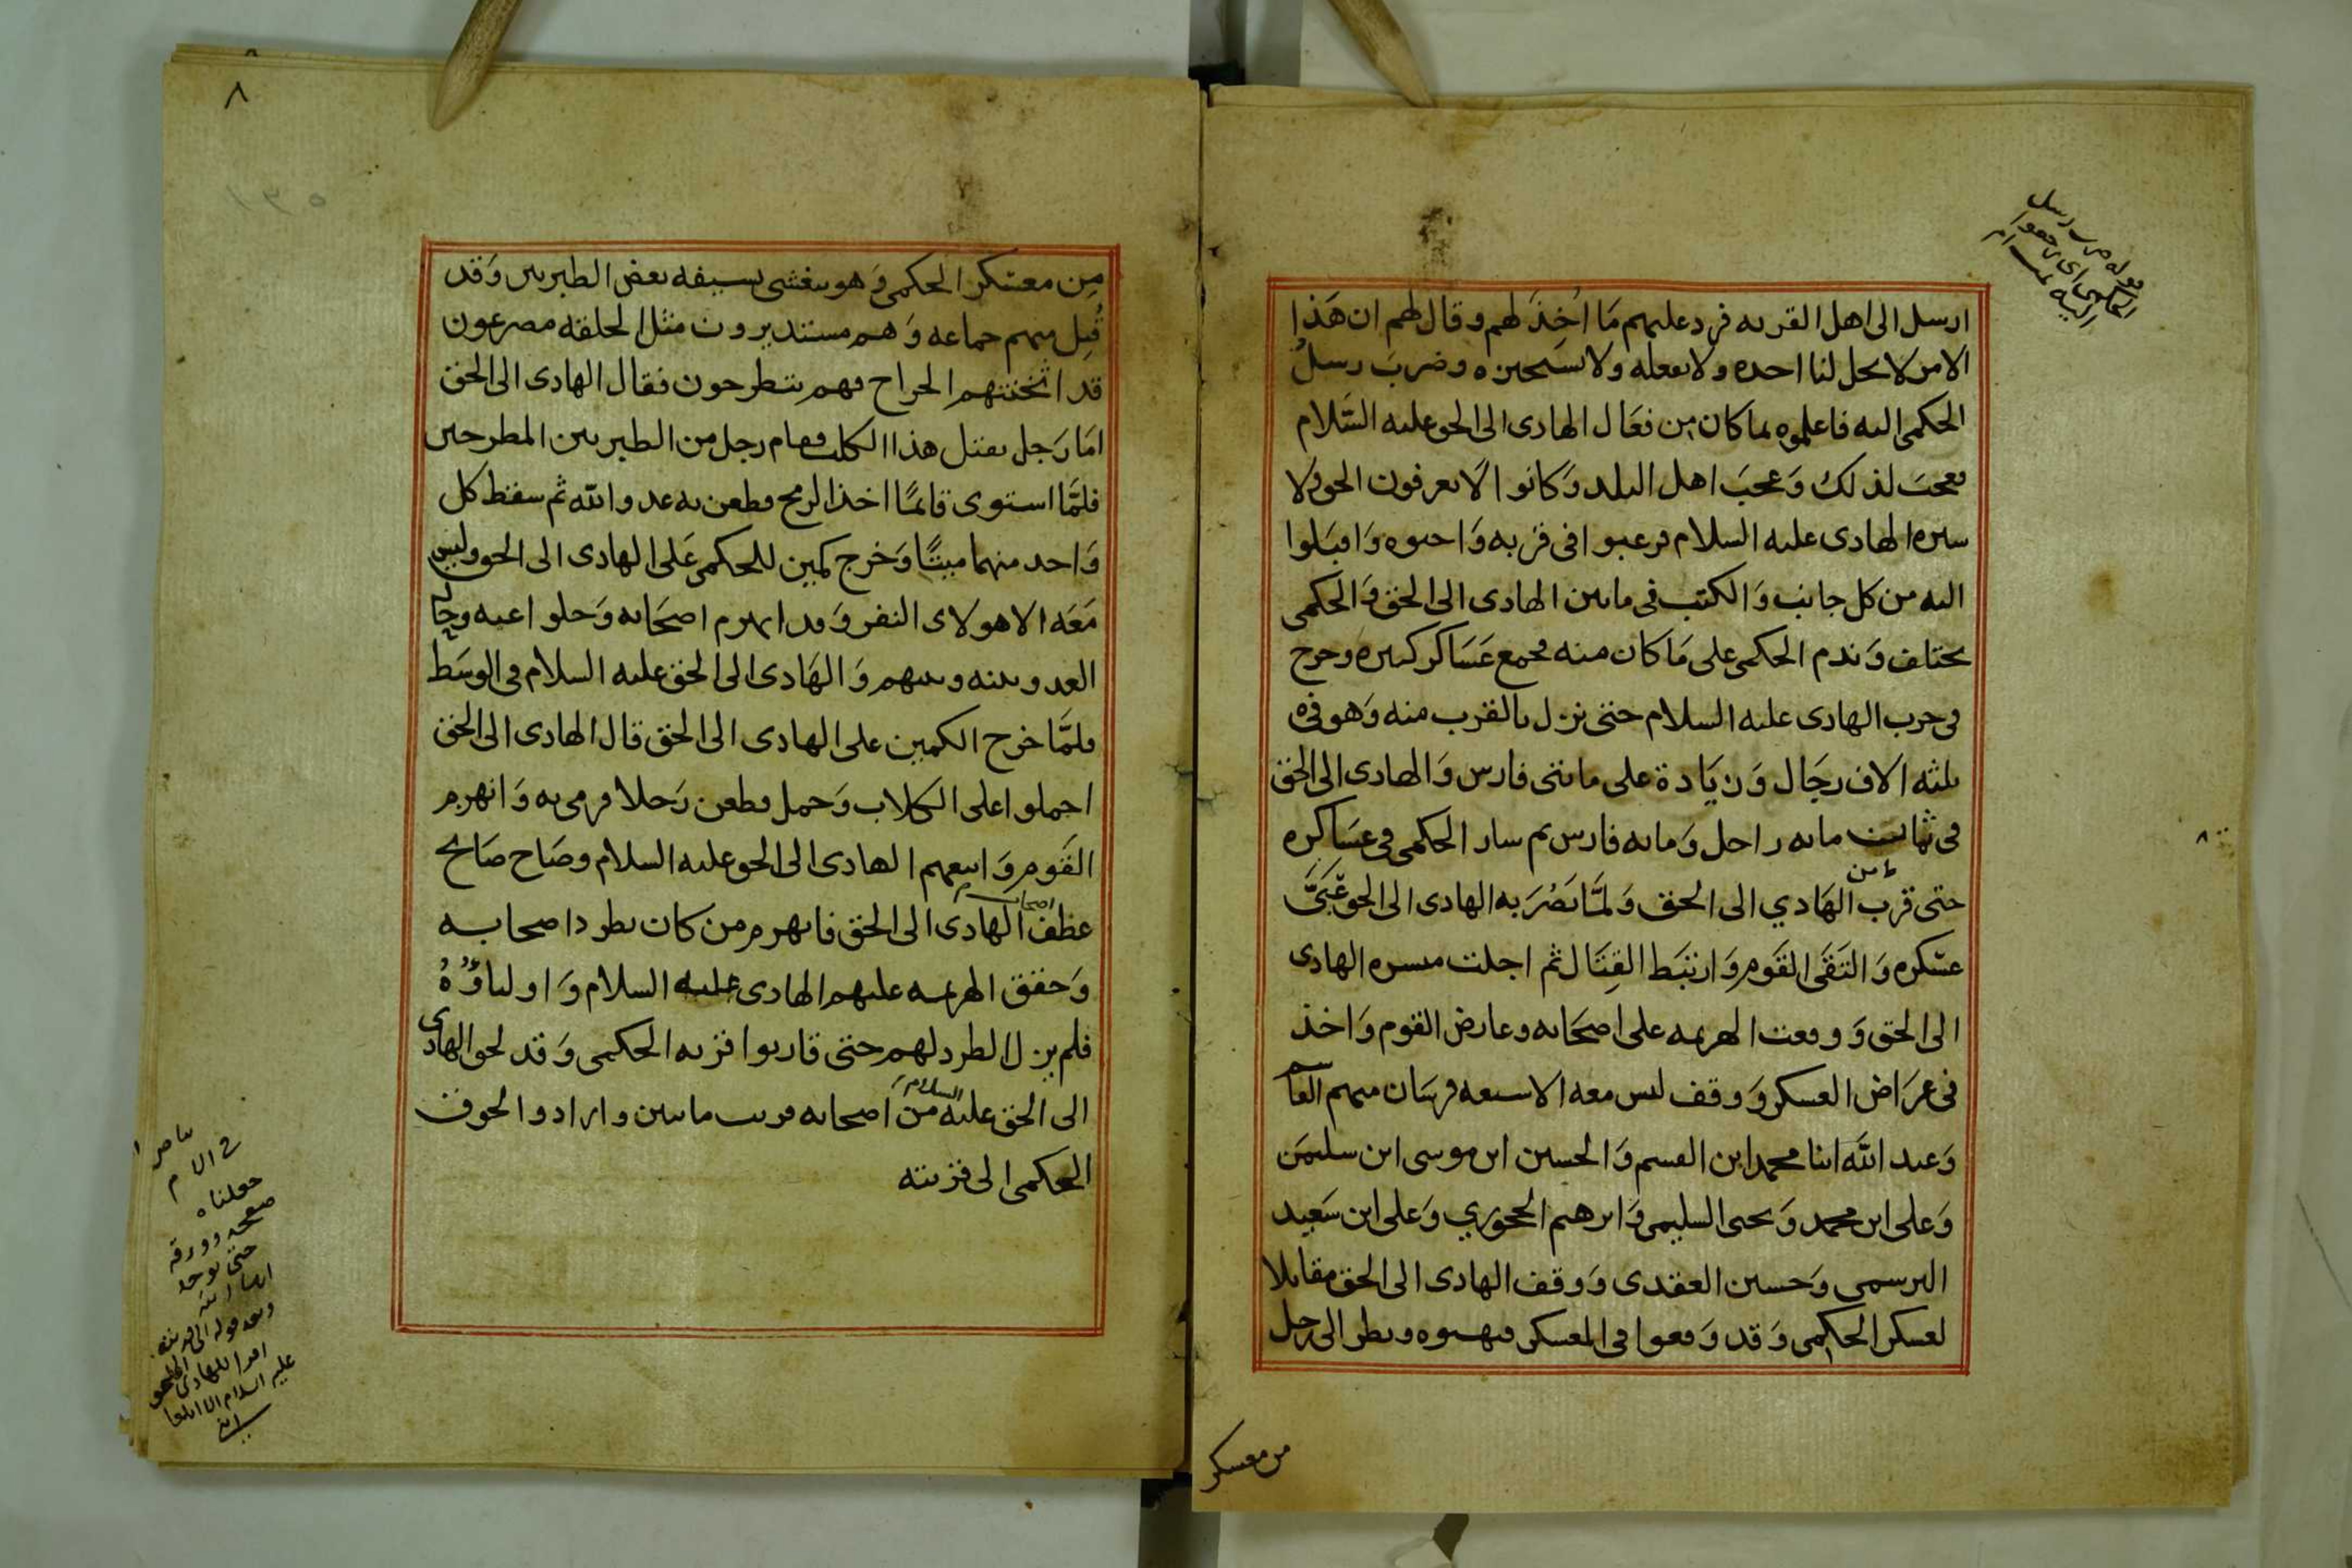 ارسل الى اهل القريه فرد عليهم مَا اُخِذَ لهم وقال لهم ان هَذا
الامر لا يحل لنا اخذه ولا نفعله ولا نستجيزه وضرب رسلُ
الحكمى اليه فاعلموه بما كان من فعَال الهادى الى الحق عليه السَّلام
فعجبَ لذلك وَعجبَ اهل البلد وَكانوا لا يعرفون الحق ولا
سيره الهادى عليه السلام فرغبوا فى قربه وَاحبوه وَاقبَلوا
اليه من كل جانب وَالكتب فى ما بين الهادى الى الحق وَالحكمى
تختلف وَندم الحكمى على مَا كان منه فجمع عَسَاكر كثيره وخرج
فى حرب الهادى عليه السلام حتى نزل بالقرب منه وَهو فى
ثلثه الاف رجَال وَزيَادة على مائتى فارس وَالهادى الى الحق
فى ثمانيـن مايه راجل وَمايه فارس ثم سار الحكمى فى عسَاكره
حتى قرب من الهَادي الى الحق وَلمَّا بَصُرَ به الهادى الى الحق عَبَّى
عسْكره وَالتقَى القَوم وَارتبَط القِتَال ثم اجلت ميسره الهادى
الى الحق وَوقعت الهزيمه على اصحَابه وعارض القوم وَاخذ
فى عرَاض العسكر وَوقف ليس معه الا سبعه فرسَان منهم القاسم
وَعبد اللّه ابنا محمد ابن القسم وَالحسين ابن موسى ابن سليمَن
وَعلى ابن محمد وَيحيى السليمى وَابرهيم الحجوري وَعلى ابن سَعيد
البرسمى وَحسين العقدى وَوقف الهادى الى الحق مقابلا
لعسكر الحكمى وَقد وَقعوا فى المعسكر فنهبوه ونظر الى رجل
من معسكر
٨
مِن معسْكر الحكمى وَهو يغشى بسيفه بعض الطبريين وَقد
قُتِل منهم جماعه وَهم مستديرون مثل الحلقه مصرعون
قد اثخنتهم الجراح فهم ينطرحون فقال الهادى الى الحق
امَا رَجل يقتل هذا الكلب فقام رجل من الطبريين المطرحين
فلمَّا استوى قائمًا اخذ الرمح فطعن به عدو اللّه ثم سقط كل
وَاحد منهما ميتًا وَخرج كمين للحكمى عَلى الهادى الى الحق وليس
مَعَه الا هولاى النفر وَقد انهزم اصحَابه وَخلوا عنه وحَال
العدو بينه وبينهم وَالهَادى الى الحق عليه السلام فى الوسَط
فلمَّا خرج الكمين على الهادى الى الحق قال الهادى الى الحق
احملوا على الكلاب وَحمل فطعن رَجلا فرمى به وَانهزم
القَوم وَاتبعهم الهادى الى الحق عليه السلام وصَاح صَايح
عطف اصحاب الهادى الى الحق فانهزم من كان يطرد اصحابه
وَحقق الهزيمه عليهم الهادى عليه السلام وَاولياؤُهُ
فلم يزل الطرد لهم حتى قاربوا قريه الحكمى وَقد لحق الهادى
الى الحق عليه السلام من اصحابه قريب مايتين وارادوا لحوق
الحكمى الى قريته
جعلناه
صفحه وورقه
حتى يوجد
ان شا الله
وبعد قوله الى قريته
امر الهادى الى الحق
عليه السلام